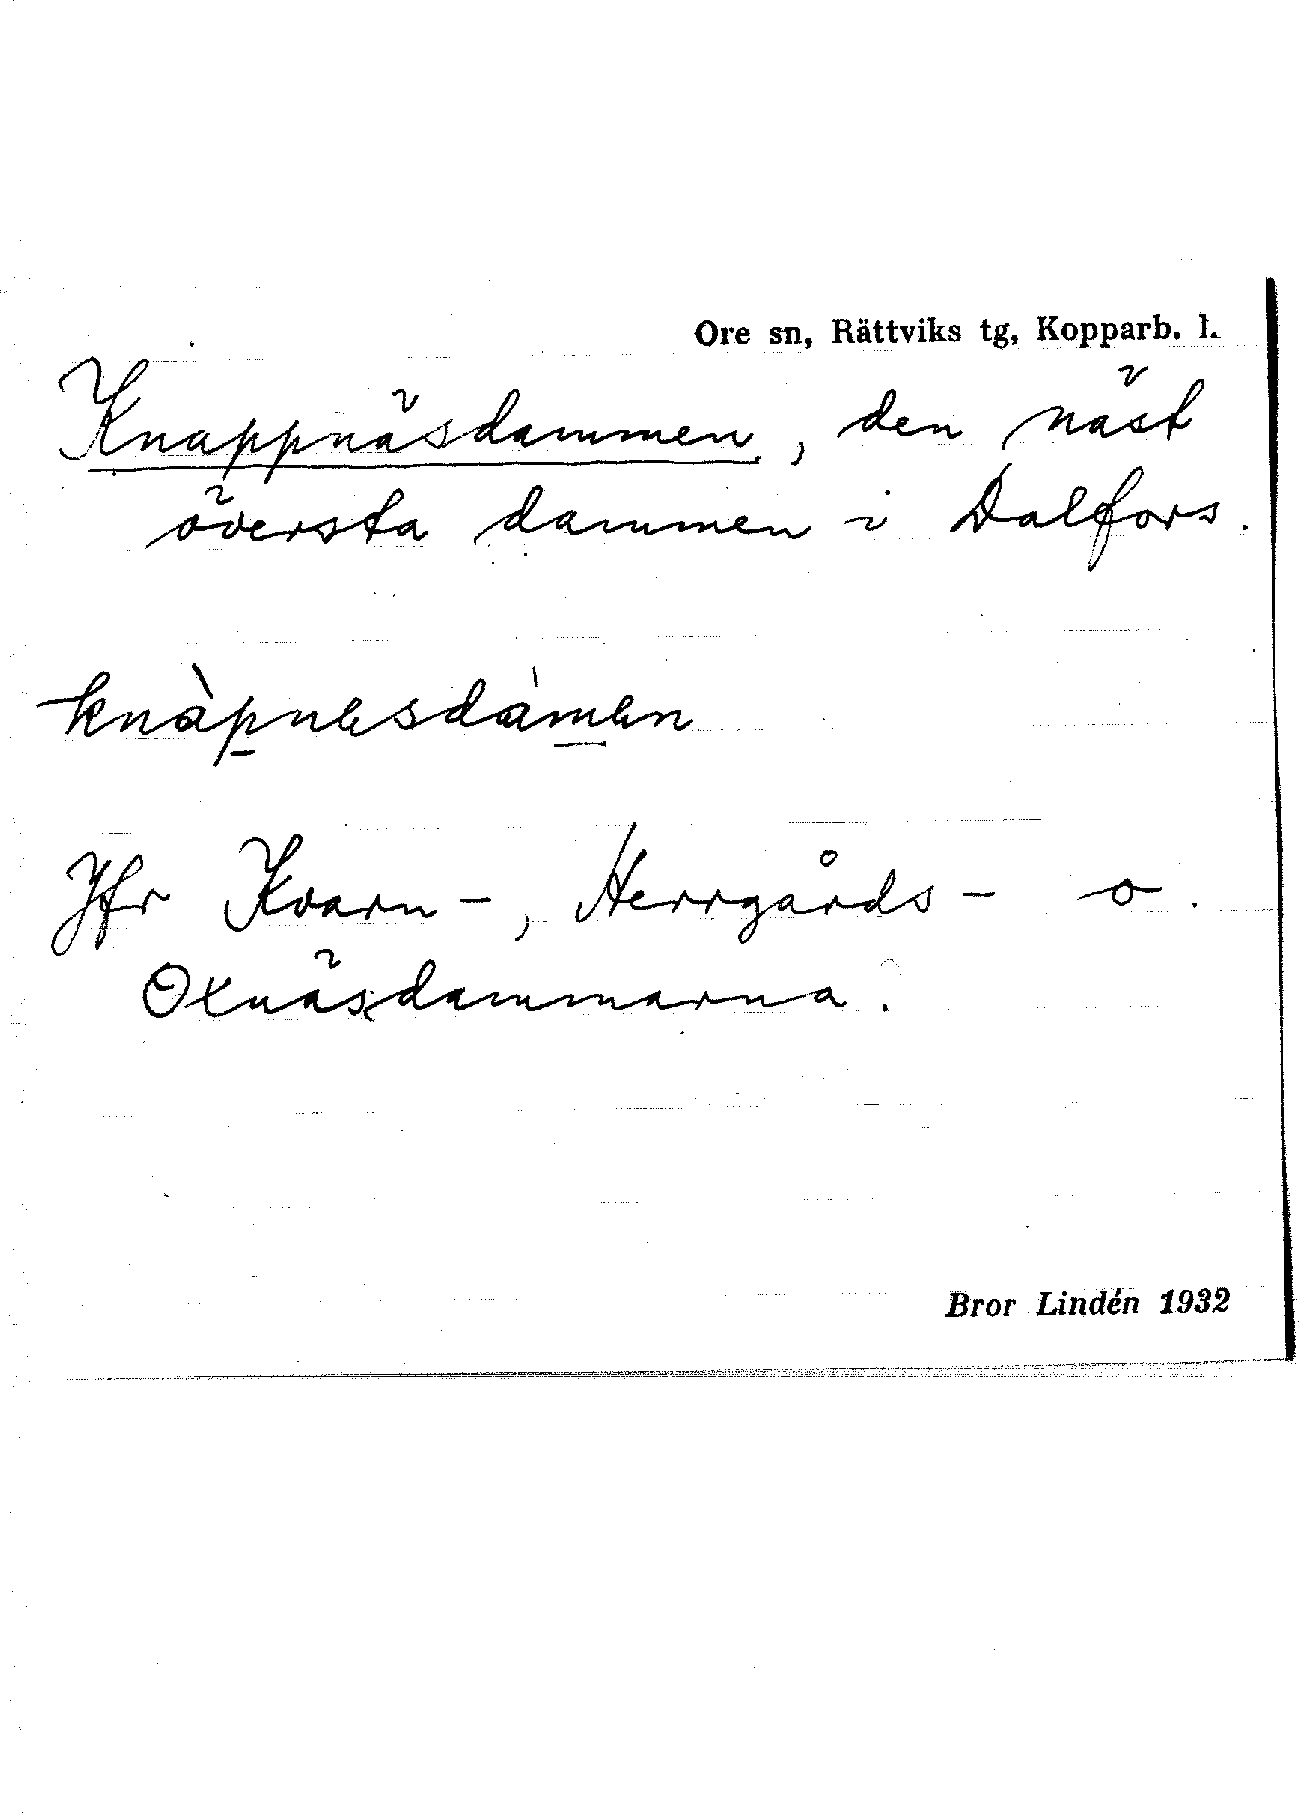 Ore sn, Rättviks tg, Kopparb. l.
Knappnäsdammen, den näst
översta dammen i Dalfors.
knàpnɐsdàmɐn
Jfr Kvarn-, Herrgårds- o.
Oxnäsdammarna.
Bror Lindén 1932